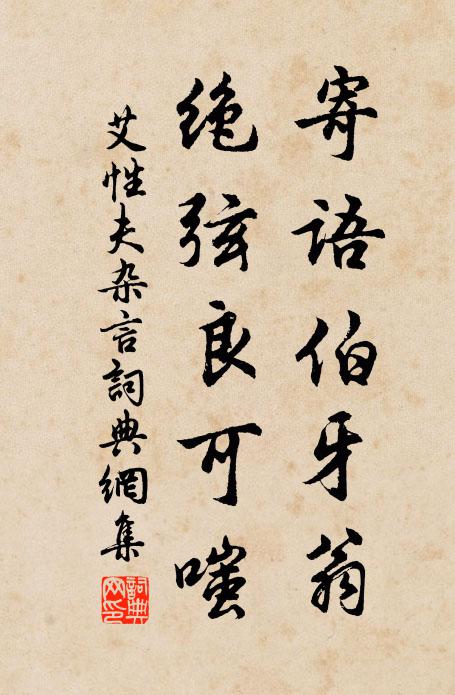 寄語伯牙翁
绝弦良可嗤
艾性夫杂言詞典網集
詞典网印